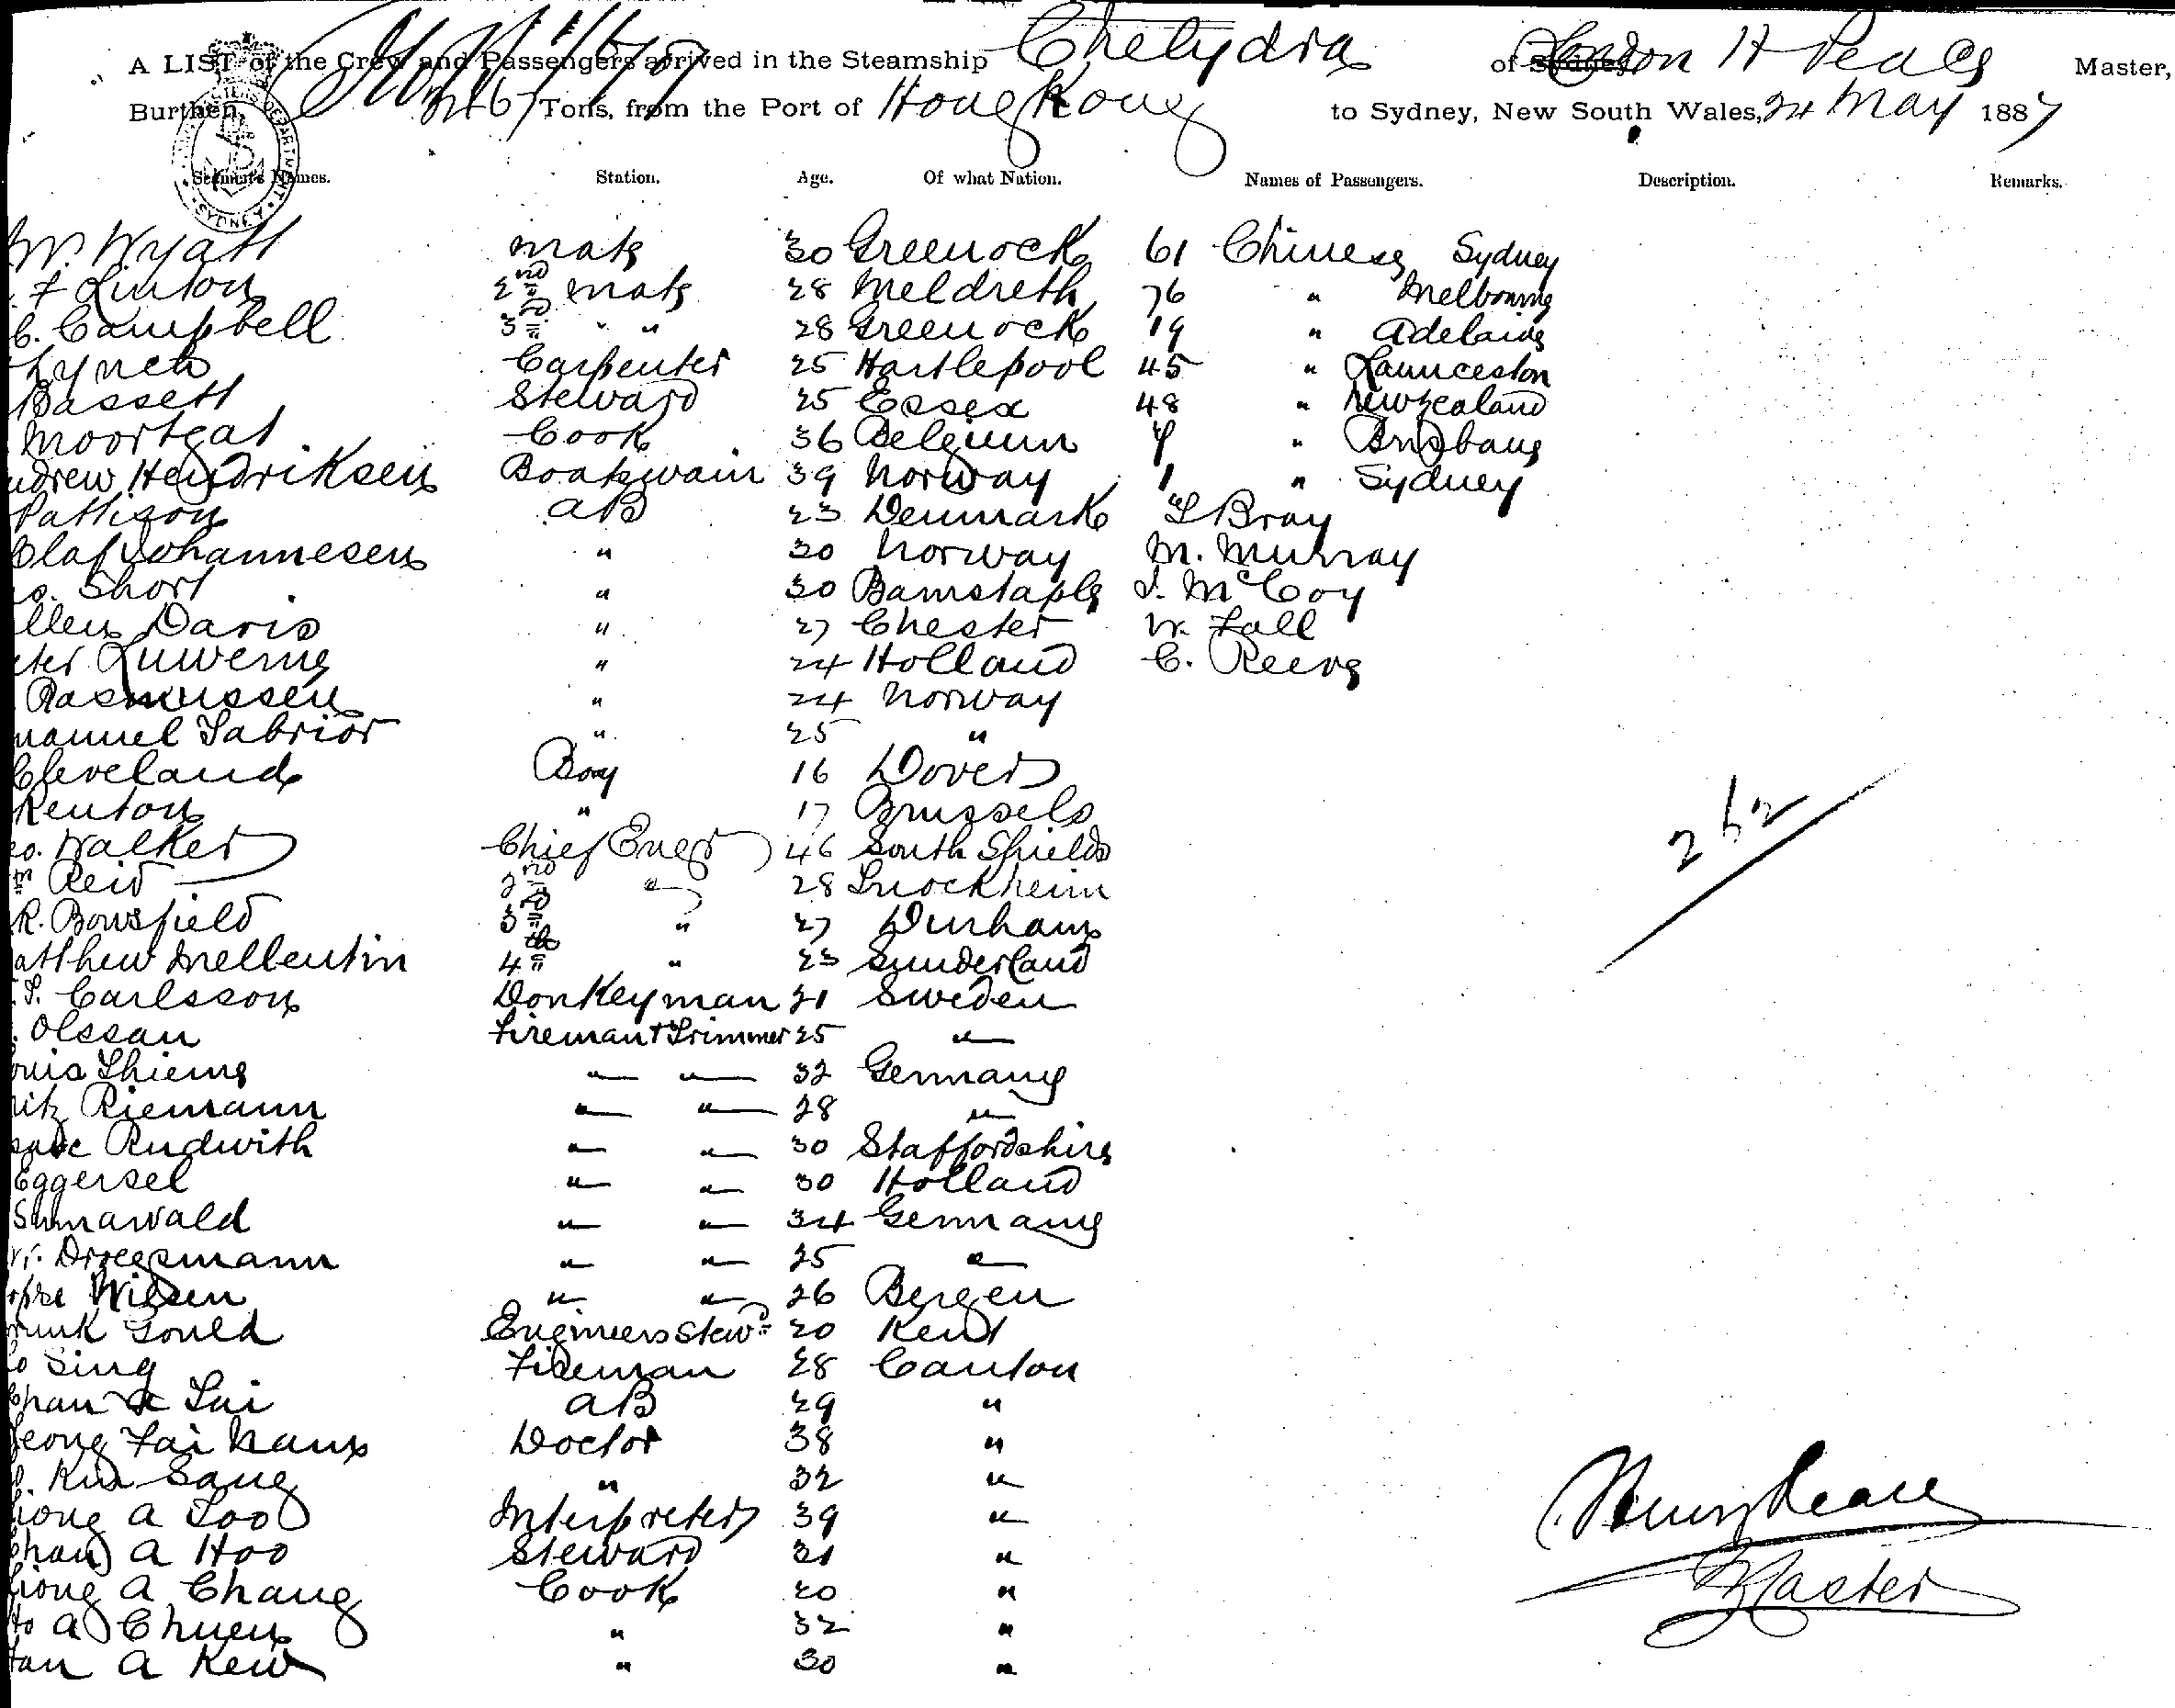 A LIST of the Crew and Passengers arrived in the Steamship Chelydra of London H Peace Master,
Burthen, Tons, from the Port of HongKong to Sydney, New South Wales, 24 May 1887
Seamen's Names. Station. Age. Of what Nation. Names of Passengers. Description. Remarks.
W. Wyatt mate 30 Greenock 61 Chinese Sydney
F Linton 2nd mate 28 Meldreth 76 " Melbourne
C. Campbell 3rd " " 28 Greenock 19 " Adelaide
Lynch Carpenter 25 Hartlepool 45 " Launceston
Bassett Steward 25 Essex 48 " New Zealand
Moortgat Cook 36 Belgium " Brisbane
ndrew Hendriksen Boatswain 39 Norway 1 " Sydney
Pattison AB 23 Denmark Bray
Olaf Johannesen " 30 Norway M. Murray
Short " 30 Barnstaple J. McCoy
llen Davis " 27 Chester W. Fall
eter Luwerne " 24 Holland C. Reeve
Rasmussen " 24 Norway
manuel Sabrior " 25 "
Cleveland Boy 16 Dover
Kenton " 17 Brussels
eo. Walker Chief Engr 46 South Shields
262
Wm Reid 2nd " 28 Friockheim
R. Bowsfield 3rd " 27 Durham
atthew Mellentin 4th " 23 Sunderland
Carlsson Donkeyman 31 Sweden
Olssan Fireman & Trimmer 25 "
ouis Thieme " " 32 Germany
ritz Riemann " " 28 "
saac Rudwith " " 30 Staffordshire
Eggersel " " 30 Holland
Sunawald " " 34 Germany
W. Droegemann " " 25 "
Nilsen " " 26 Bergen
rank Gould Engineers Stewd 20 Kent
Sing Fireman 28 Canton
Chan A Tai AB 29 "
eong Fai Nam Doctor 38 "
Kum Sang " 32 "
iong A Soo Interpreter 39 "
Henry Peace
Chan A Hoo Steward 31 "
iong A Chang Cook 20 "
Master
Ho A Chuen " 32 "
an A Kew " 30 "